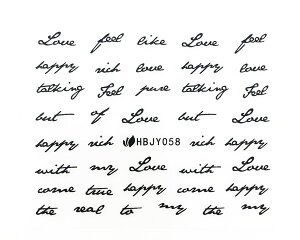 Love feel like Love feel
happy rich love happy love
talking Feel pure talking Feel
but of Love but Love
happy rich HBJY058 rich happy
with my Love with Love
come true happy come happy
the real to my the